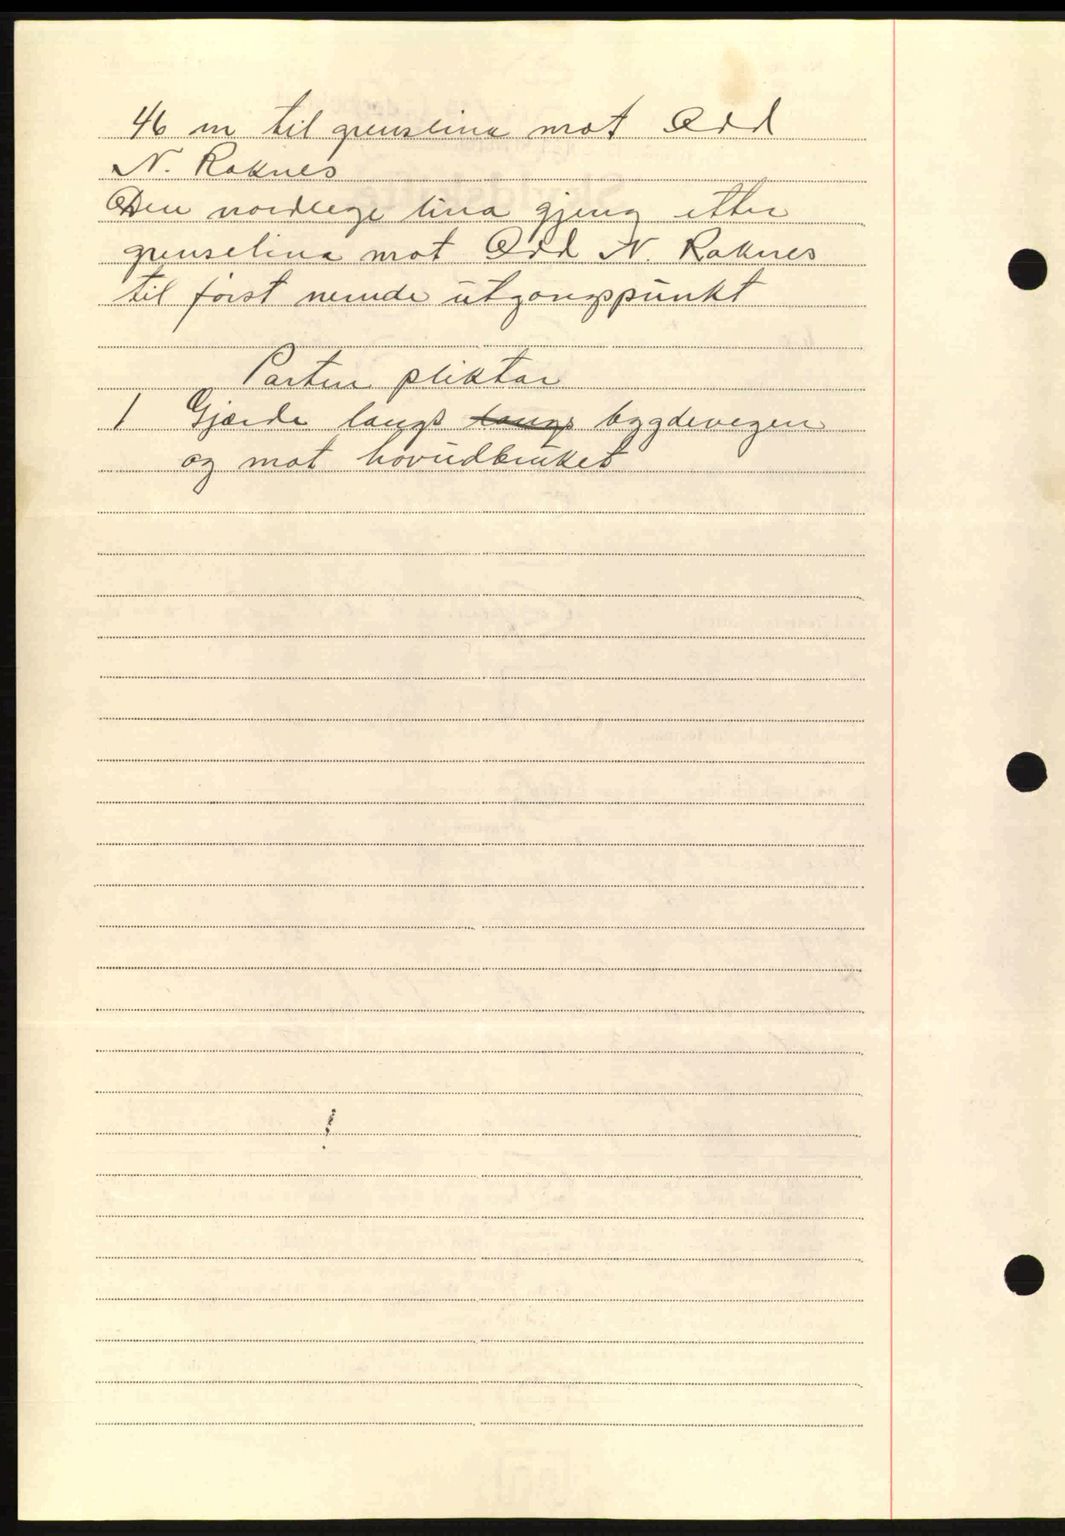 46 m til grenselina mot Odd
N. Raknes
Den nordlege lina gjeng etter
grenselina mot Odd N. Raknes
til først nemde utgangspunkt
Parten pliktar
1 Gjærde langs langs bygdevegen
og mot hovudbruket